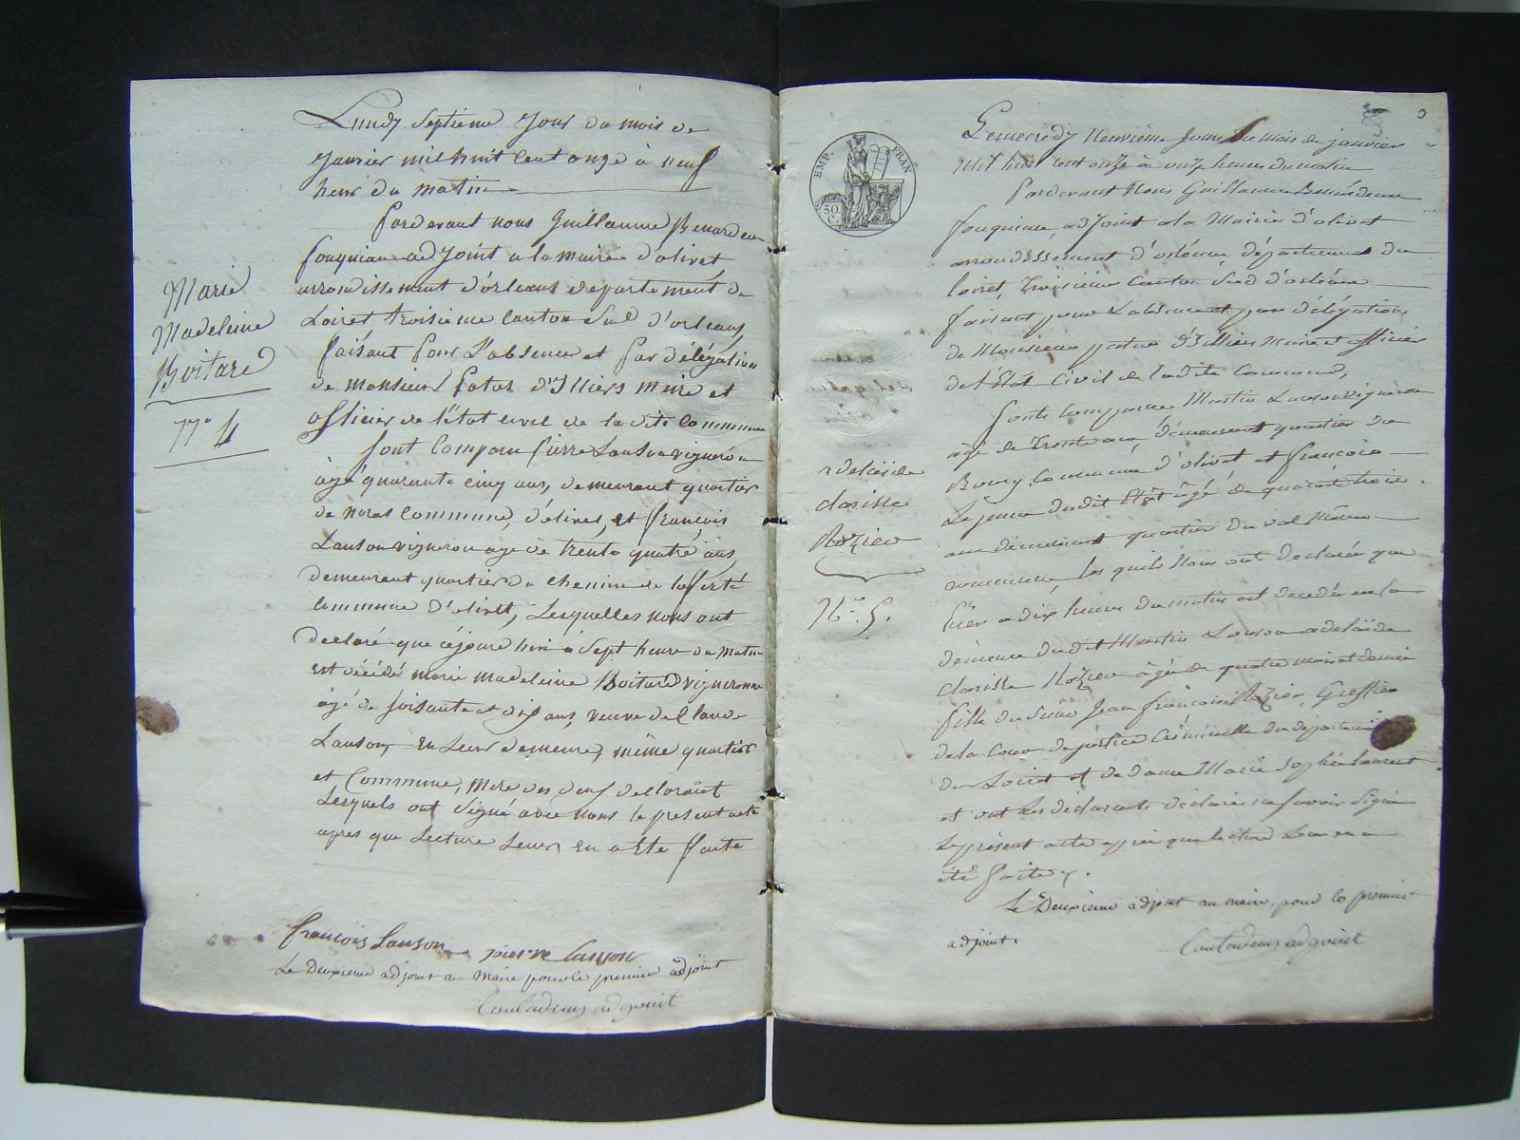 Lundy Septieme Jour du mois de
Janvier mil huit Cent onze à neuf
heur du matin
Pardevant nous Guillaume Benard
fouquiau adjoint a la mairie d'olivet
arrondissement d'orleans departement du
Loiret troisieme Canton Sud d'orleans
faisant pour L'absence et par délégation
de monsieur Patas d'Illiers maire et
officier de l'état civil de la dite Commune
Sont Comparu Pierre Lanson vigneron
agé quarante cinq ans, demeurant quartier
de Commune d'olivet, et françois
Lanson vigneron agé de trente quatre ans
demeurant quartier du chemin de la ferté
Commune d'olivet, Lesquelles nous ont
declaré que cejourd'hui à Sept heure du matin
est décédé marie madeleine Boitard vigneronne
agé de soisante et dix ans, veuve de Claude
Lanson, en Leur demeure, même quartier
et Commune, Mere des deux declarant
Lesquels ont Signé avec nous le present acte
apres que Lecture Leur en a Eté faite
Marie
Madeleine
Boitard
no 4
françois Lanson pierre lanson
Le deuxieme adjoint au maire pour le premier adjoint
adjoint
EMP. FRAN.
50
C.
Le mercredy neuvième Jour du mois de janvier
mil huit cent onze à onze heures du matin
Pardevant Nous Guillaume Benard
fouquiau adjoint a la Mairie d'olivet
arrondissement d'orléans département du
loiret, troisième Canton Sud d'orléans
faisant pour L'absence et par délégation
de Monsieur patas d'Illiers Maire et officier
de l'État Civil de ladite Commune,
Sont Comparu Martin Lanson vigneron
agé de trente ans, demeurant quartier du
Bourg Commune d'olivet et françois
Lejeune dudit État âgé de quarante trois
ans demeurant quartier du val Même
commune, les quels Nous ont declaré que
hier a dix heures du matin est décédée en la
demeure du dit Martin Lanson adelaïde
clarisse Rozier âgée de quatre mois et demie
fille de Jean françois Rozier, Greffier
de la Cour de justice Criminelle du département
du Loiret et de dame Marie Sophie laurent
et ont Les déclarants déclaré ne savoir Signer
Le présent acte après que lecture Leur en a
été faite.
adelaïde
clarisse
Rozier
No. 5.
Le Deuxieme adjoint au maire, pour le premier
adjoint.
adjoint